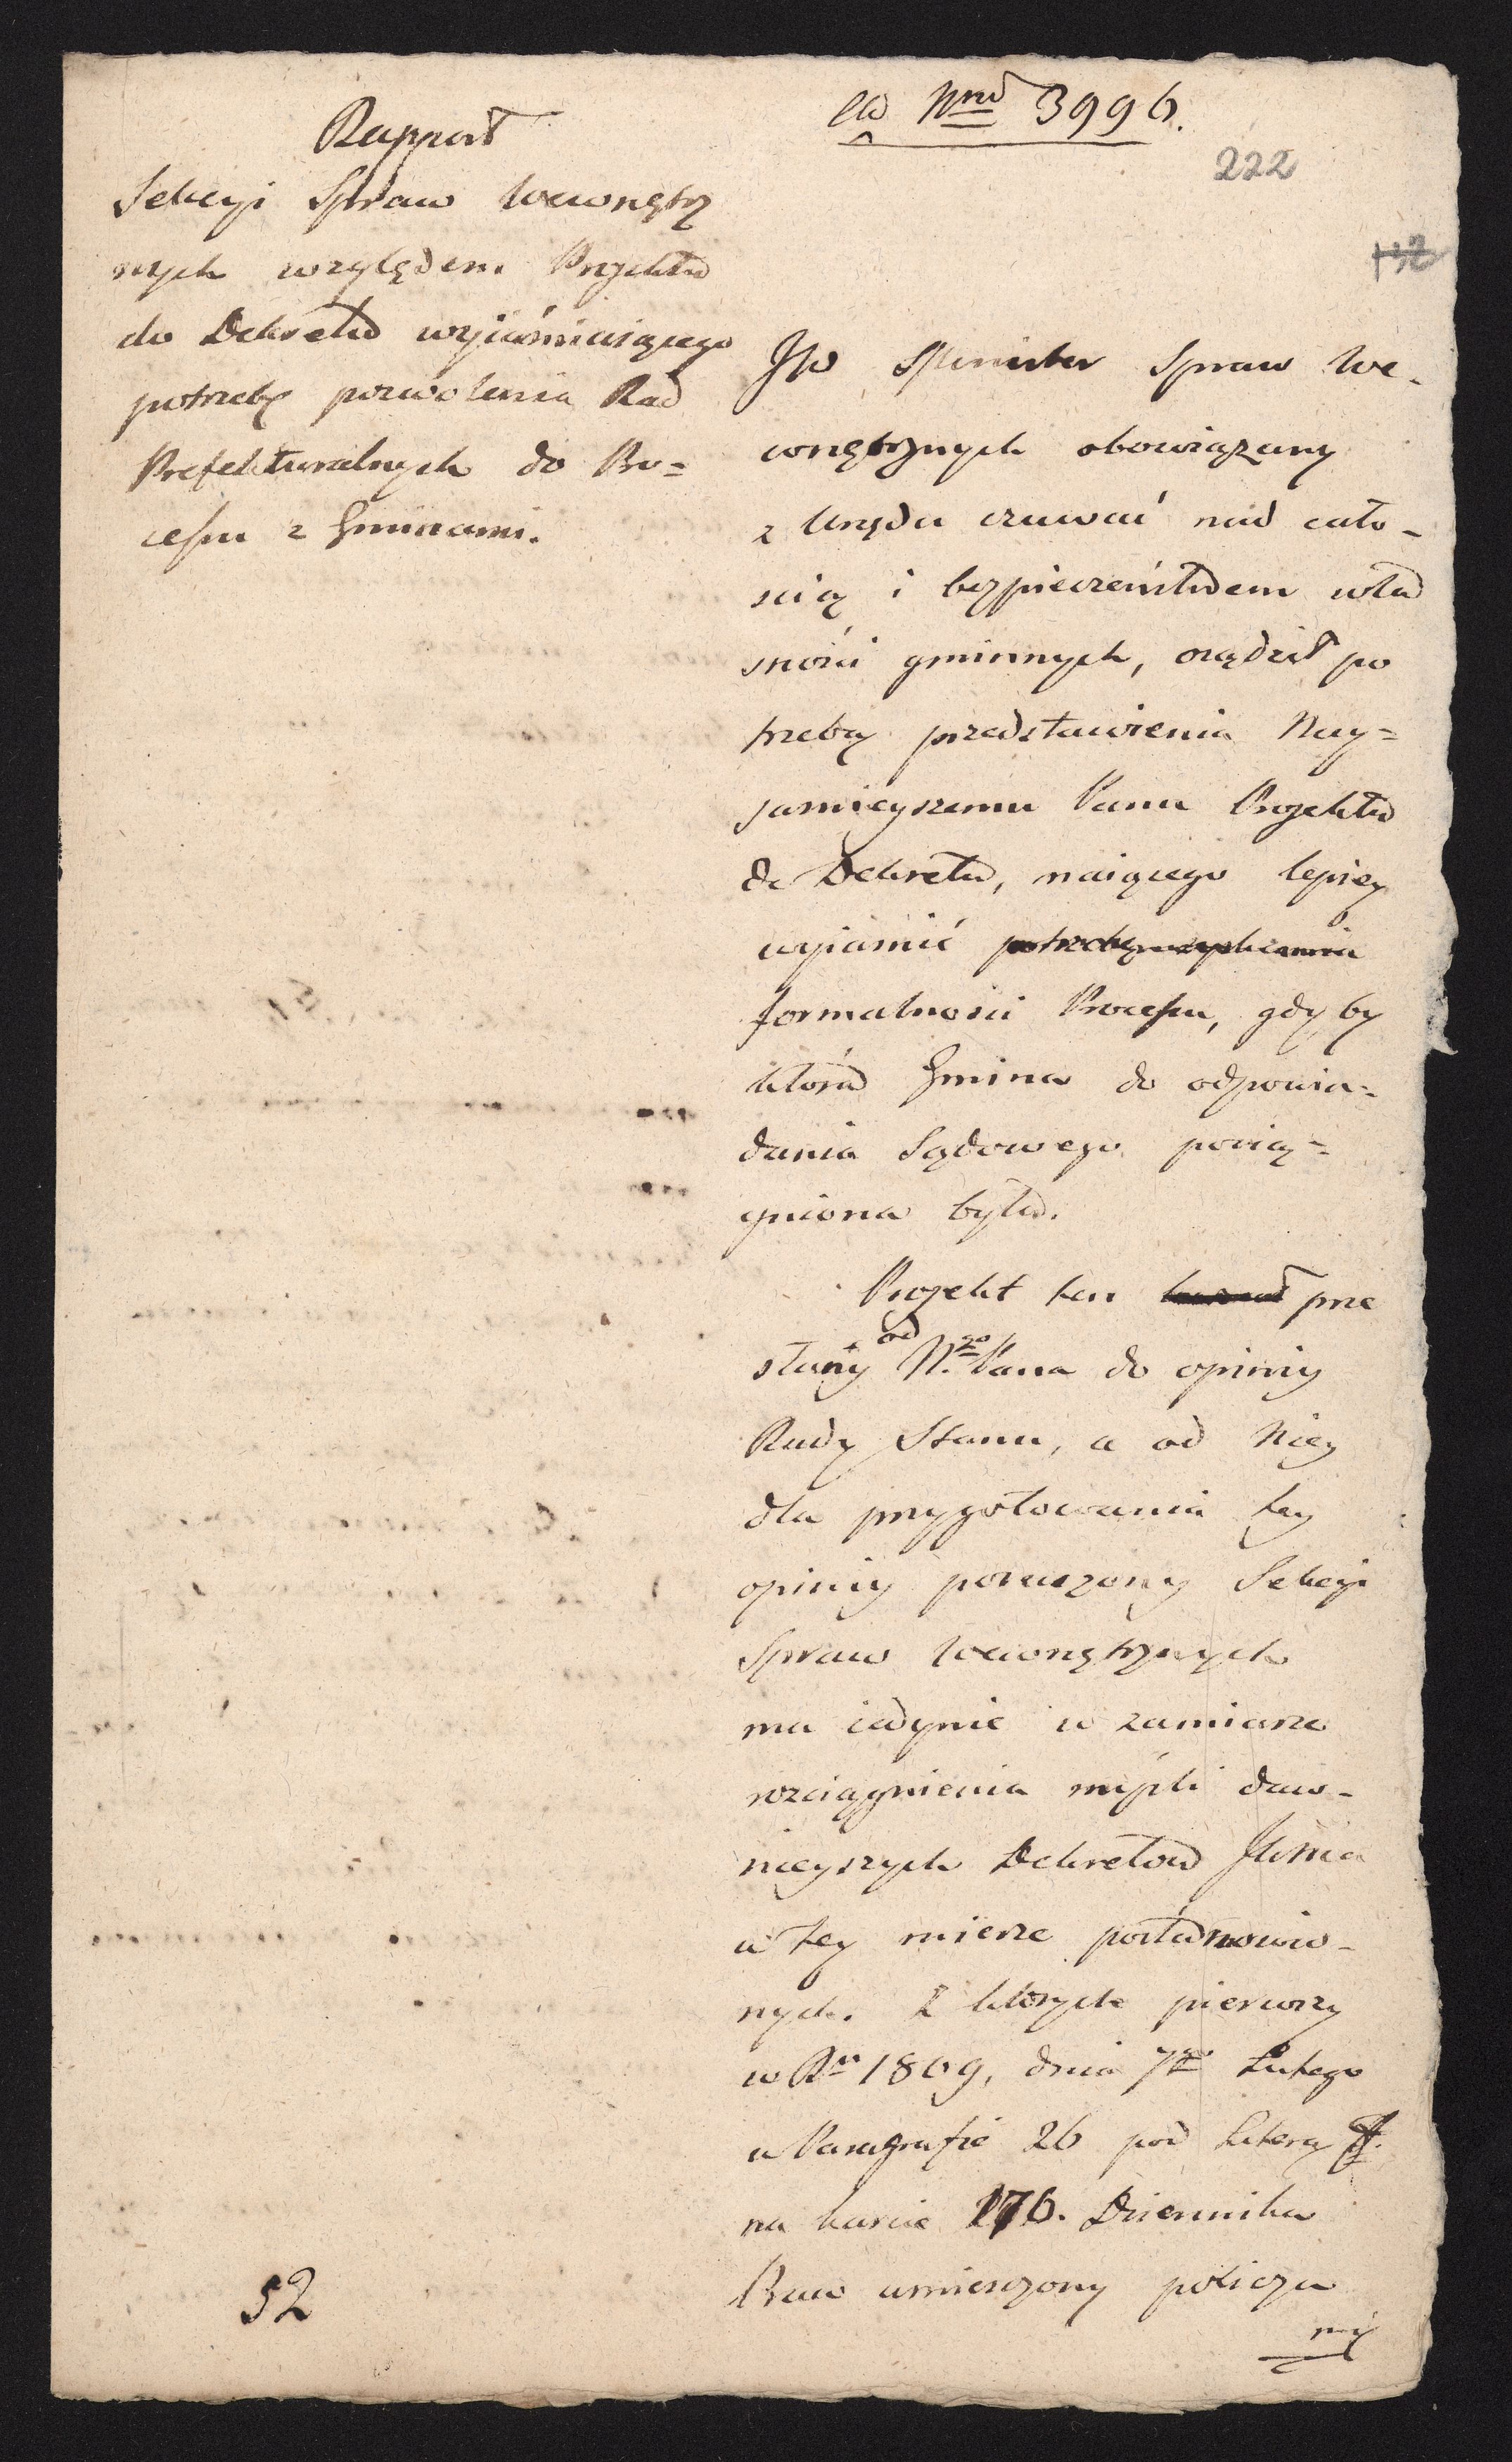 ad Nrū 3996.
222
132
Rapport
Sekcyi Spraw Wewnętrz
nych względem Projektu
do Dekretu wyjaśniaiącego
potrzebę pozwolenia Rad
Prefekturalnych do Pro=
cessu z Gminami.
JW Minister Spraw We-
wnętrznych obowiązany
z Urzędu czuwać nad cało-
ścią i bezpieczeństwem wła
sności gminnych, osądził po
trzebę przedstawienia Nay=
jasnieyszemu Panu Projektu
do Dekretu, maiącego lepiey
wyiaśnić potrzebę
formalności Processu, gdyby
która Gmina do odpowia=
dania Sądowego pocią=
gniona była.
Projekt ten prze
słany od N.go Pana do opinii
Rady Stanu, a od Niey
dla przygotowania tey
opinii poruczony Sekcyi
Spraw Wewnętrznych
ma iedynie w zamiarze
rozciągnienia myśli daw-
nieyszych Dekretów
w tey mierze postanowio-
nych. Z których pierwszy
w Ru 1809, dnia 7go Lutego
w Paragrafie 26 pod Literą f.
na karcie 176. Dziennika
Praw umieszczony policza
my
52